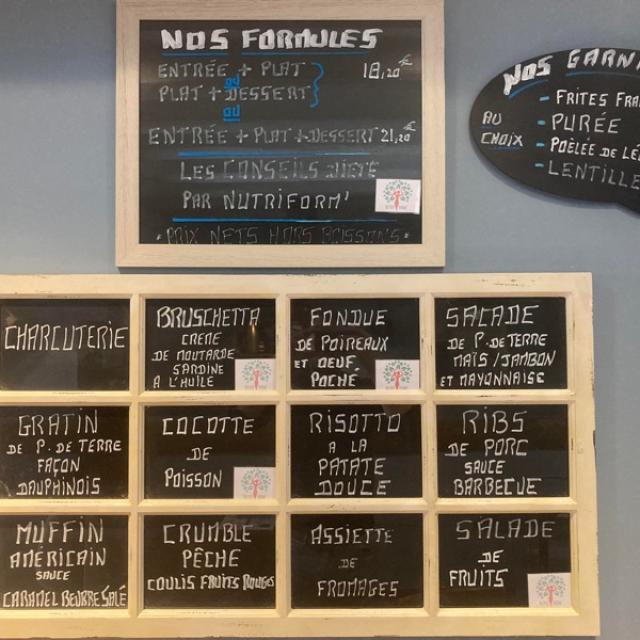 NOS FORMULES
ENTRÉE + PLAT 18,20€
ou
PLAT + DESSERT
ou
ENTRÉE + PLAT + DESSERT 21,20€
LES CONSEILS DIÉTÉ
PAR NUTRIFORM'
* PRIX NETS HORS BOISSONS *
NOS GARN
AU CHOIX
- FRITES FRA
- PURÉE
- POÊLÉE DE LÉ
- LENTILLE
CHARCUTERIE
BRUSCHETTA
CREME
DE MOUTARDE
SARDINE
A L'HUILE
FONDUE
DE POIREAUX
ET OEUF
POCHÉ
SALADE
DE P. DE TERRE
MAÏS / JAMBON
ET MAYONNAISE
GRATIN
DE P. DE TERRE
FAÇON
DAUPHINOIS
COCOTTE
DE
POISSON
RISOTTO
A LA
PATATE
DOUCE
RIBS
DE PORC
SAUCE
BARBECUE
MUFFIN
AMÉRICAIN
SAUCE
CARAMEL BEURRE SALÉ
CRUMBLE
PÊCHE
COULIS FRUITS ROUGES
ASSIETTE
DE
FROMAGES
SALADE
DE
FRUITS